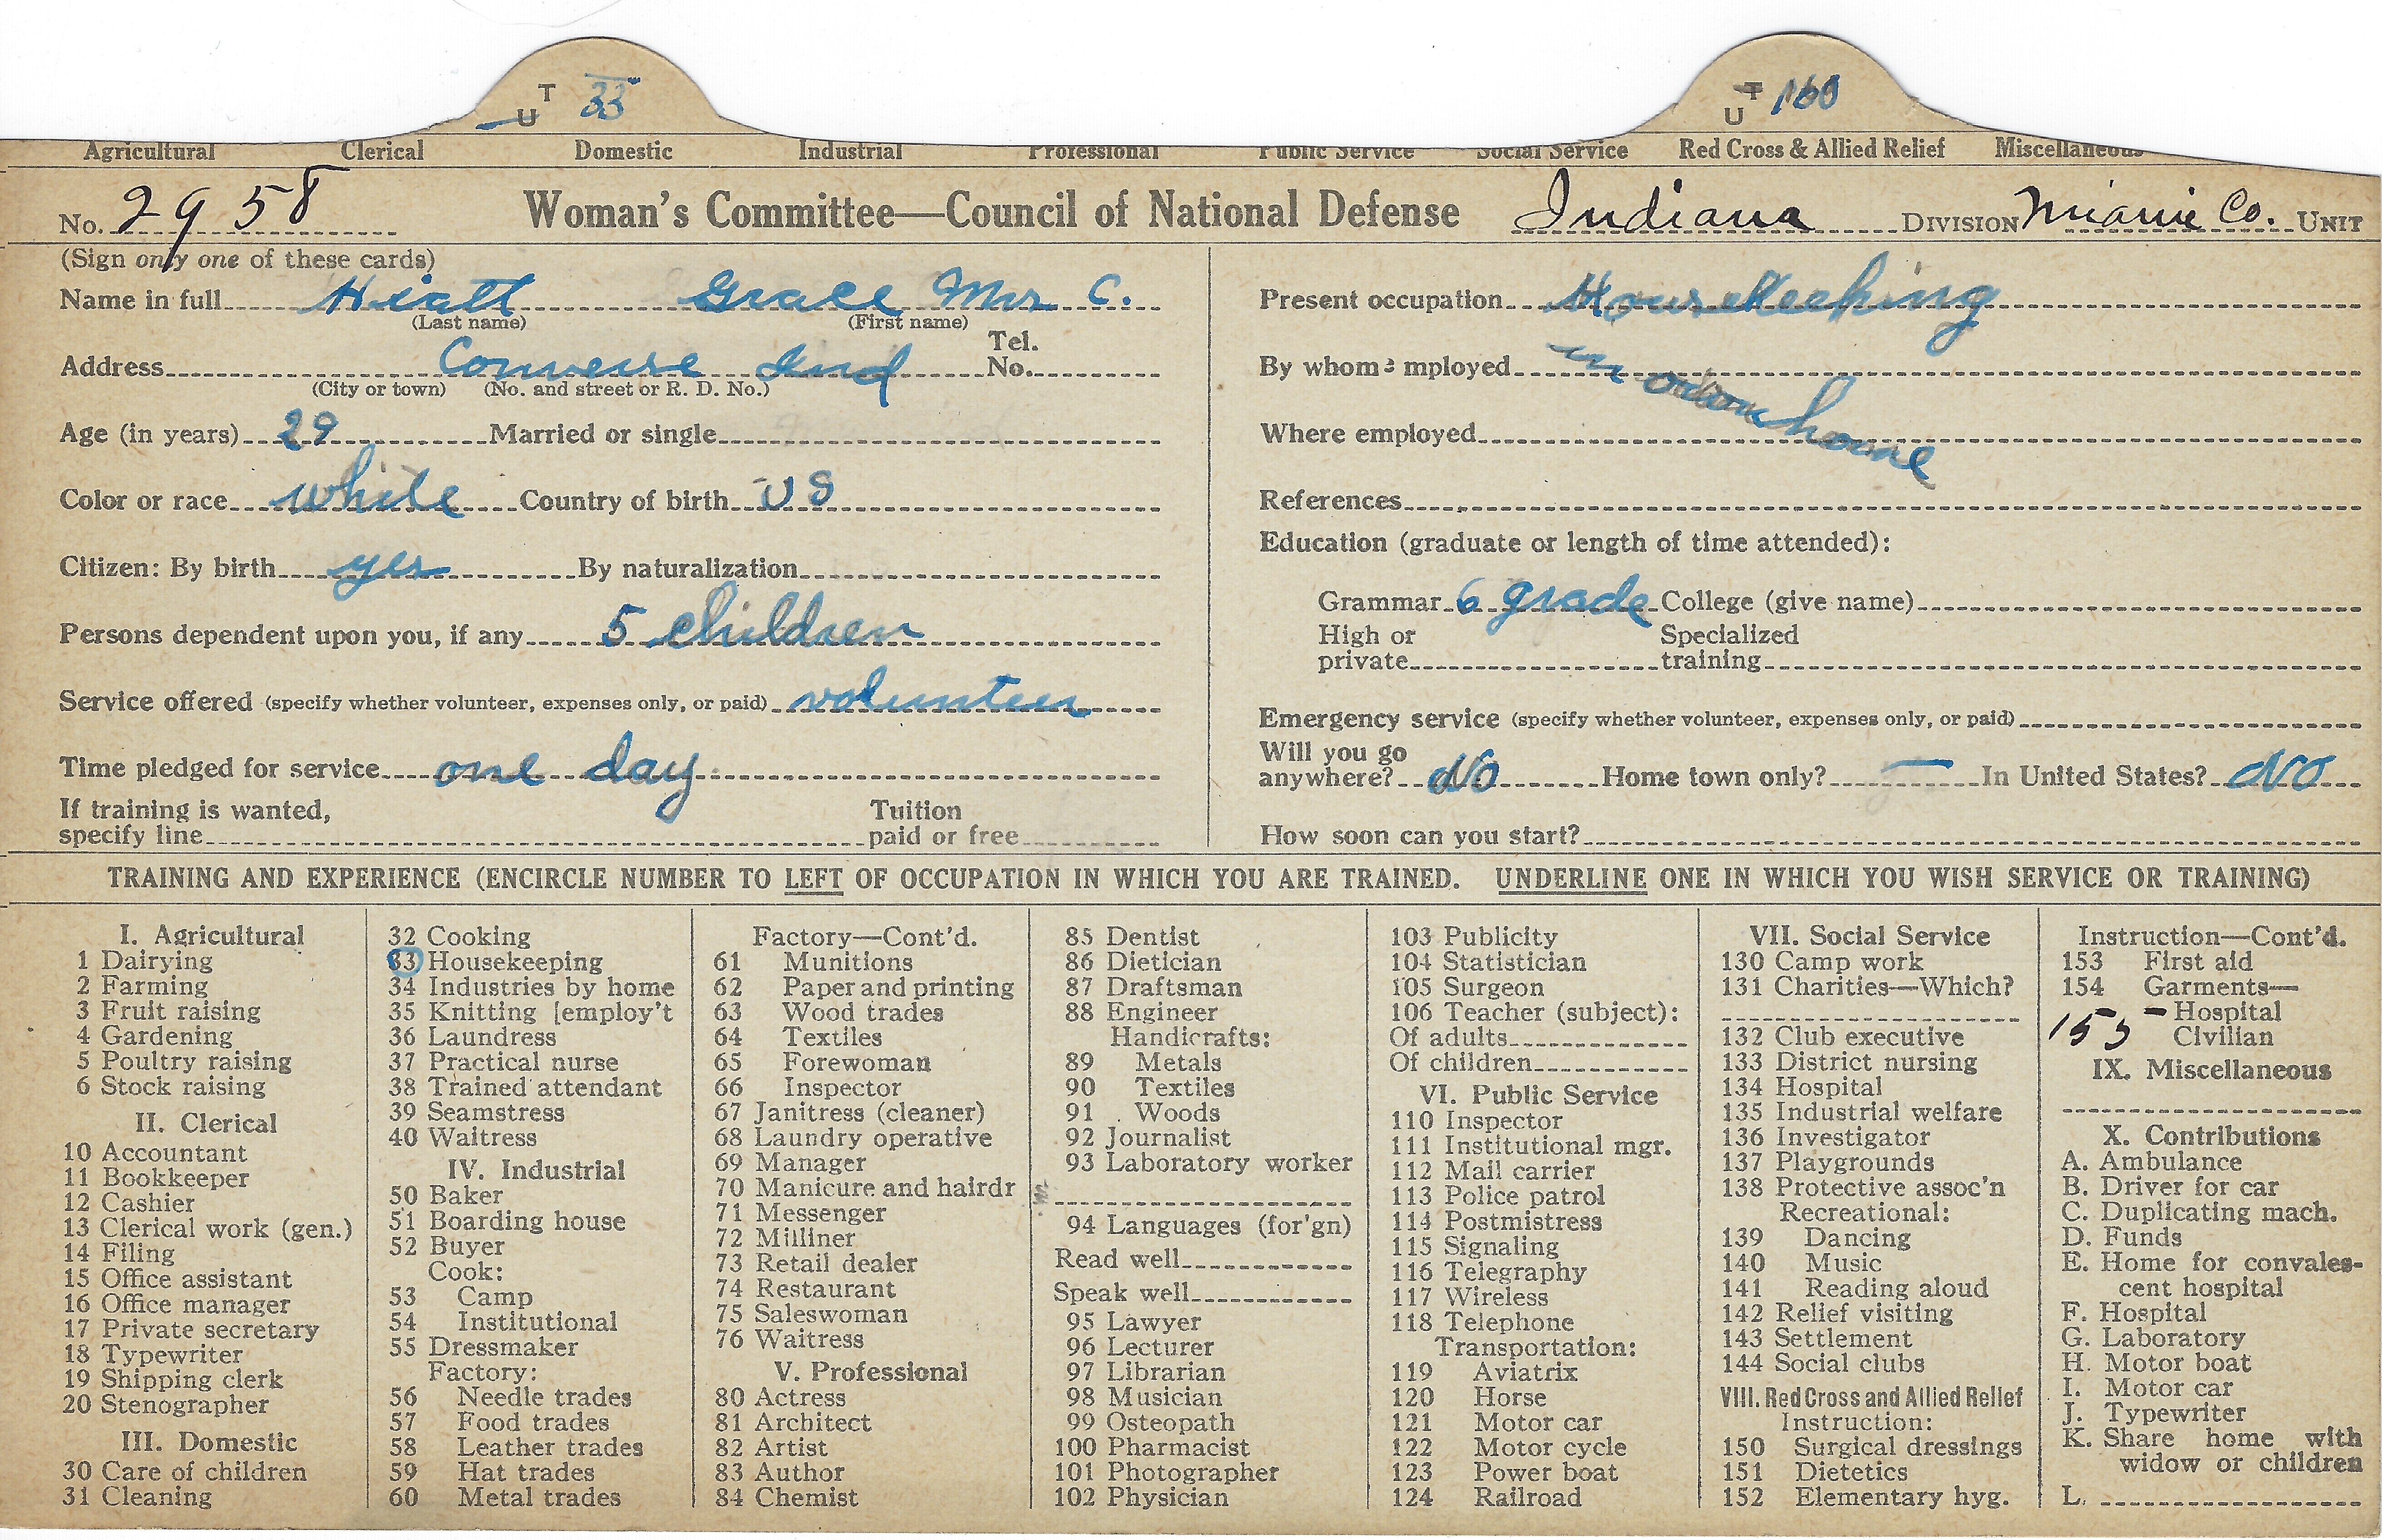 T U 33 T U 160
Agricultural Clerical Domestic Industrial Professional Public Service Social Service Red Cross & Allied Relief Miscellaneous
No. 2958 Woman's Committee—Council of National Defense Indiana DIVISION Miami Co. UNIT
(Sign only one of these cards)
Name in full Hiatt Grace Mrs C.
(Last name) (First name)
Address Converse Ind Tel. No.
(City or town) (No. and street or R. D. No.)
Age (in years) 29 Married or single
Color or race white Country of birth US
Citizen: By birth yes By naturalization
Persons dependent upon you, if any 5 children
Service offered (specify whether volunteer, expenses only, or paid) volunteer
Time pledged for service one day
If training is wanted, specify line Tuition paid or free
Present occupation Housekeeping
By whom employed in own home
Where employed
References
Education (graduate or length of time attended):
Grammar 6 grade College (give name)
High or private Specialized training
Emergency service (specify whether volunteer, expenses only, or paid)
Will you go anywhere? No Home town only? — In United States? No
How soon can you start?
TRAINING AND EXPERIENCE (ENCIRCLE NUMBER TO LEFT OF OCCUPATION IN WHICH YOU ARE TRAINED. UNDERLINE ONE IN WHICH YOU WISH SERVICE OR TRAINING)
I. Agricultural
1 Dairying
2 Farming
3 Fruit raising
4 Gardening
5 Poultry raising
6 Stock raising
II. Clerical
10 Accountant
11 Bookkeeper
12 Cashier
13 Clerical work (gen.)
14 Filing
15 Office assistant
16 Office manager
17 Private secretary
18 Typewriter
19 Shipping clerk
20 Stenographer
III. Domestic
30 Care of children
31 Cleaning
32 Cooking
33 Housekeeping
34 Industries by home
35 Knitting [employ't
36 Laundress
37 Practical nurse
38 Trained attendant
39 Seamstress
40 Waitress
IV. Industrial
50 Baker
51 Boarding house
52 Buyer
Cook:
53 Camp
54 Institutional
55 Dressmaker
Factory:
56 Needle trades
57 Food trades
58 Leather trades
59 Hat trades
60 Metal trades
Factory—Cont'd.
61 Munitions
62 Paper and printing
63 Wood trades
64 Textiles
65 Forewoman
66 Inspector
67 Janitress (cleaner)
68 Laundry operative
69 Manager
70 Manicure and hairdr
71 Messenger
72 Milliner
73 Retail dealer
74 Restaurant
75 Saleswoman
76 Waitress
V. Professional
80 Actress
81 Architect
82 Artist
83 Author
84 Chemist
85 Dentist
86 Dietician
87 Draftsman
88 Engineer
Handicrafts:
89 Metals
90 Textiles
91 Woods
92 Journalist
93 Laboratory worker
94 Languages (for'gn)
Read well
Speak well
95 Lawyer
96 Lecturer
97 Librarian
98 Musician
99 Osteopath
100 Pharmacist
101 Photographer
102 Physician
103 Publicity
104 Statistician
105 Surgeon
106 Teacher (subject):
Of adults
Of children
VI. Public Service
110 Inspector
111 Institutional mgr.
112 Mail carrier
113 Police patrol
114 Postmistress
115 Signaling
116 Telegraphy
117 Wireless
118 Telephone
Transportation:
119 Aviatrix
120 Horse
121 Motor car
122 Motor cycle
123 Power boat
124 Railroad
VII. Social Service
130 Camp work
131 Charities—Which?
132 Club executive
133 District nursing
134 Hospital
135 Industrial welfare
136 Investigator
137 Playgrounds
138 Protective assoc'n
Recreational:
139 Dancing
140 Music
141 Reading aloud
142 Relief visiting
143 Settlement
144 Social clubs
VIII. Red Cross and Allied Relief
Instruction:
150 Surgical dressings
151 Dietetics
152 Elementary hyg.
Instruction—Cont'd.
153 First aid
154 Garments—
Hospital
155 Civilian
IX. Miscellaneous
X. Contributions
A. Ambulance
B. Driver for car
C. Duplicating mach.
D. Funds
E. Home for convales-
cent hospital
F. Hospital
G. Laboratory
H. Motor boat
I. Motor car
J. Typewriter
K. Share home with
widow or children
L.